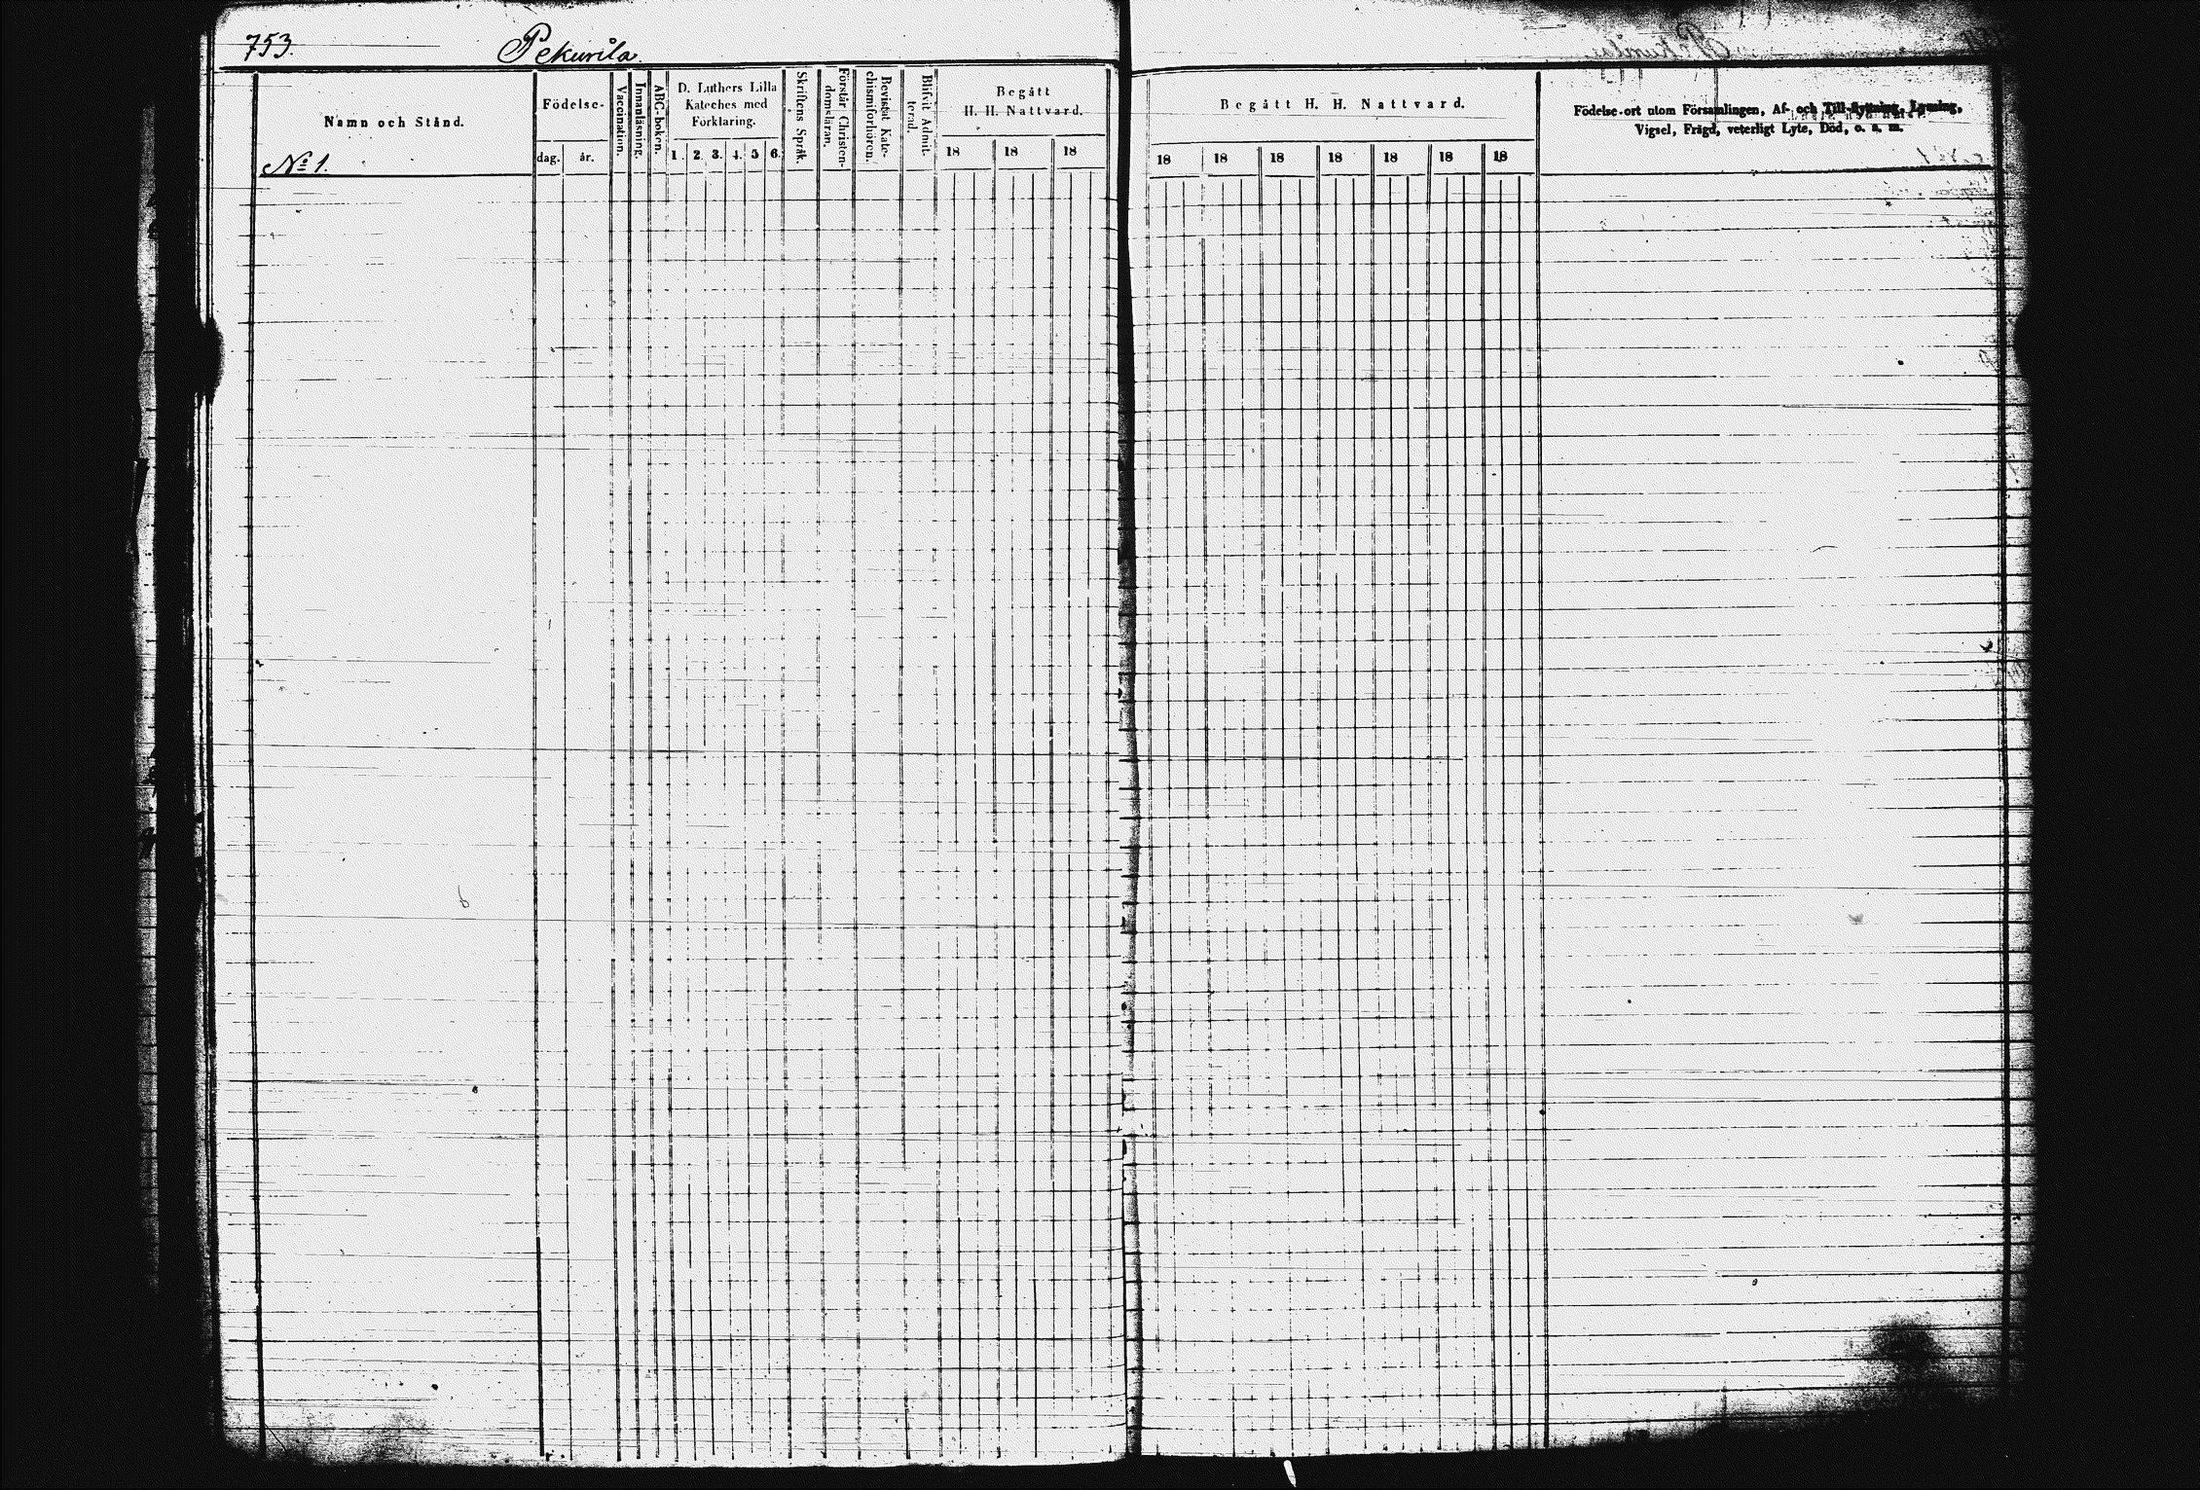 753.
Pekurila.
Namn och Stånd.
No 1.
Födelse-
dag.
år.
Vaccination.
Innanläsning.
ABC-boken.
D. Luthers Lilla
Kateches med
Förklaring.
1. 2. 3. 4. 5 6.
Skriftens Språk.
Förstår Christen-
domsläran.
Bevistat Kate-
chismiförhören.
Blifvit Admit-
terad.
Begått
H. H. Nattvard.
18 18 18
Begått H. H. Nattvard.
18 18 18 18 18 18 18
Födelse-ort utom Församlingen, Af- och Till-flyttning, Lysning,
Vigsel, Frägd, veterligt Lyte, Död, o. s. m.